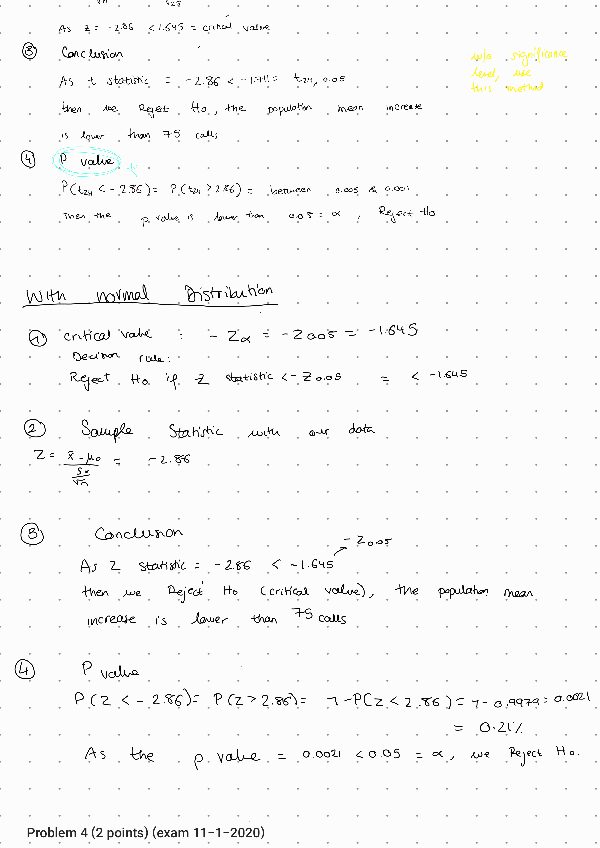 As z = -2.86 < 1.645 = critical value
③ Conclusion
As t statistic = -2.86 < -1.711 = t24, 0.05
then we Reject Ho, the population mean increase
is lower than 75 calls
with significance
level, use
this method
④ P value
P(t24 < -2.86) = P(t24 > 2.86) = between 0.005 & 0.001
Then the p value is lower than 0.05 = α, Reject Ho
With normal Distribution
① critical value : - Zα = - Z0.05 = -1.645
Decision rule:
Reject Ho if Z statistic < - Z0.05 = < -1.645
② Sample Statistic with our data
Z = x̄ - μ0 / (Sx / √n) = -2.86
③ Conclusion
- Z0.05
As Z statistic = -2.86 < -1.645
then we Reject Ho (critical value), the population mean
increase is lower than 75 calls
④ P value
P(Z < -2.86) = P(Z > 2.86) = 1 - P(Z < 2.86) = 1 - 0.9979 = 0.0021
= 0.21%
As the p.value = 0.0021 < 0.05 = α, we Reject Ho.
Problem 4 (2 points) (exam 11-1-2020)